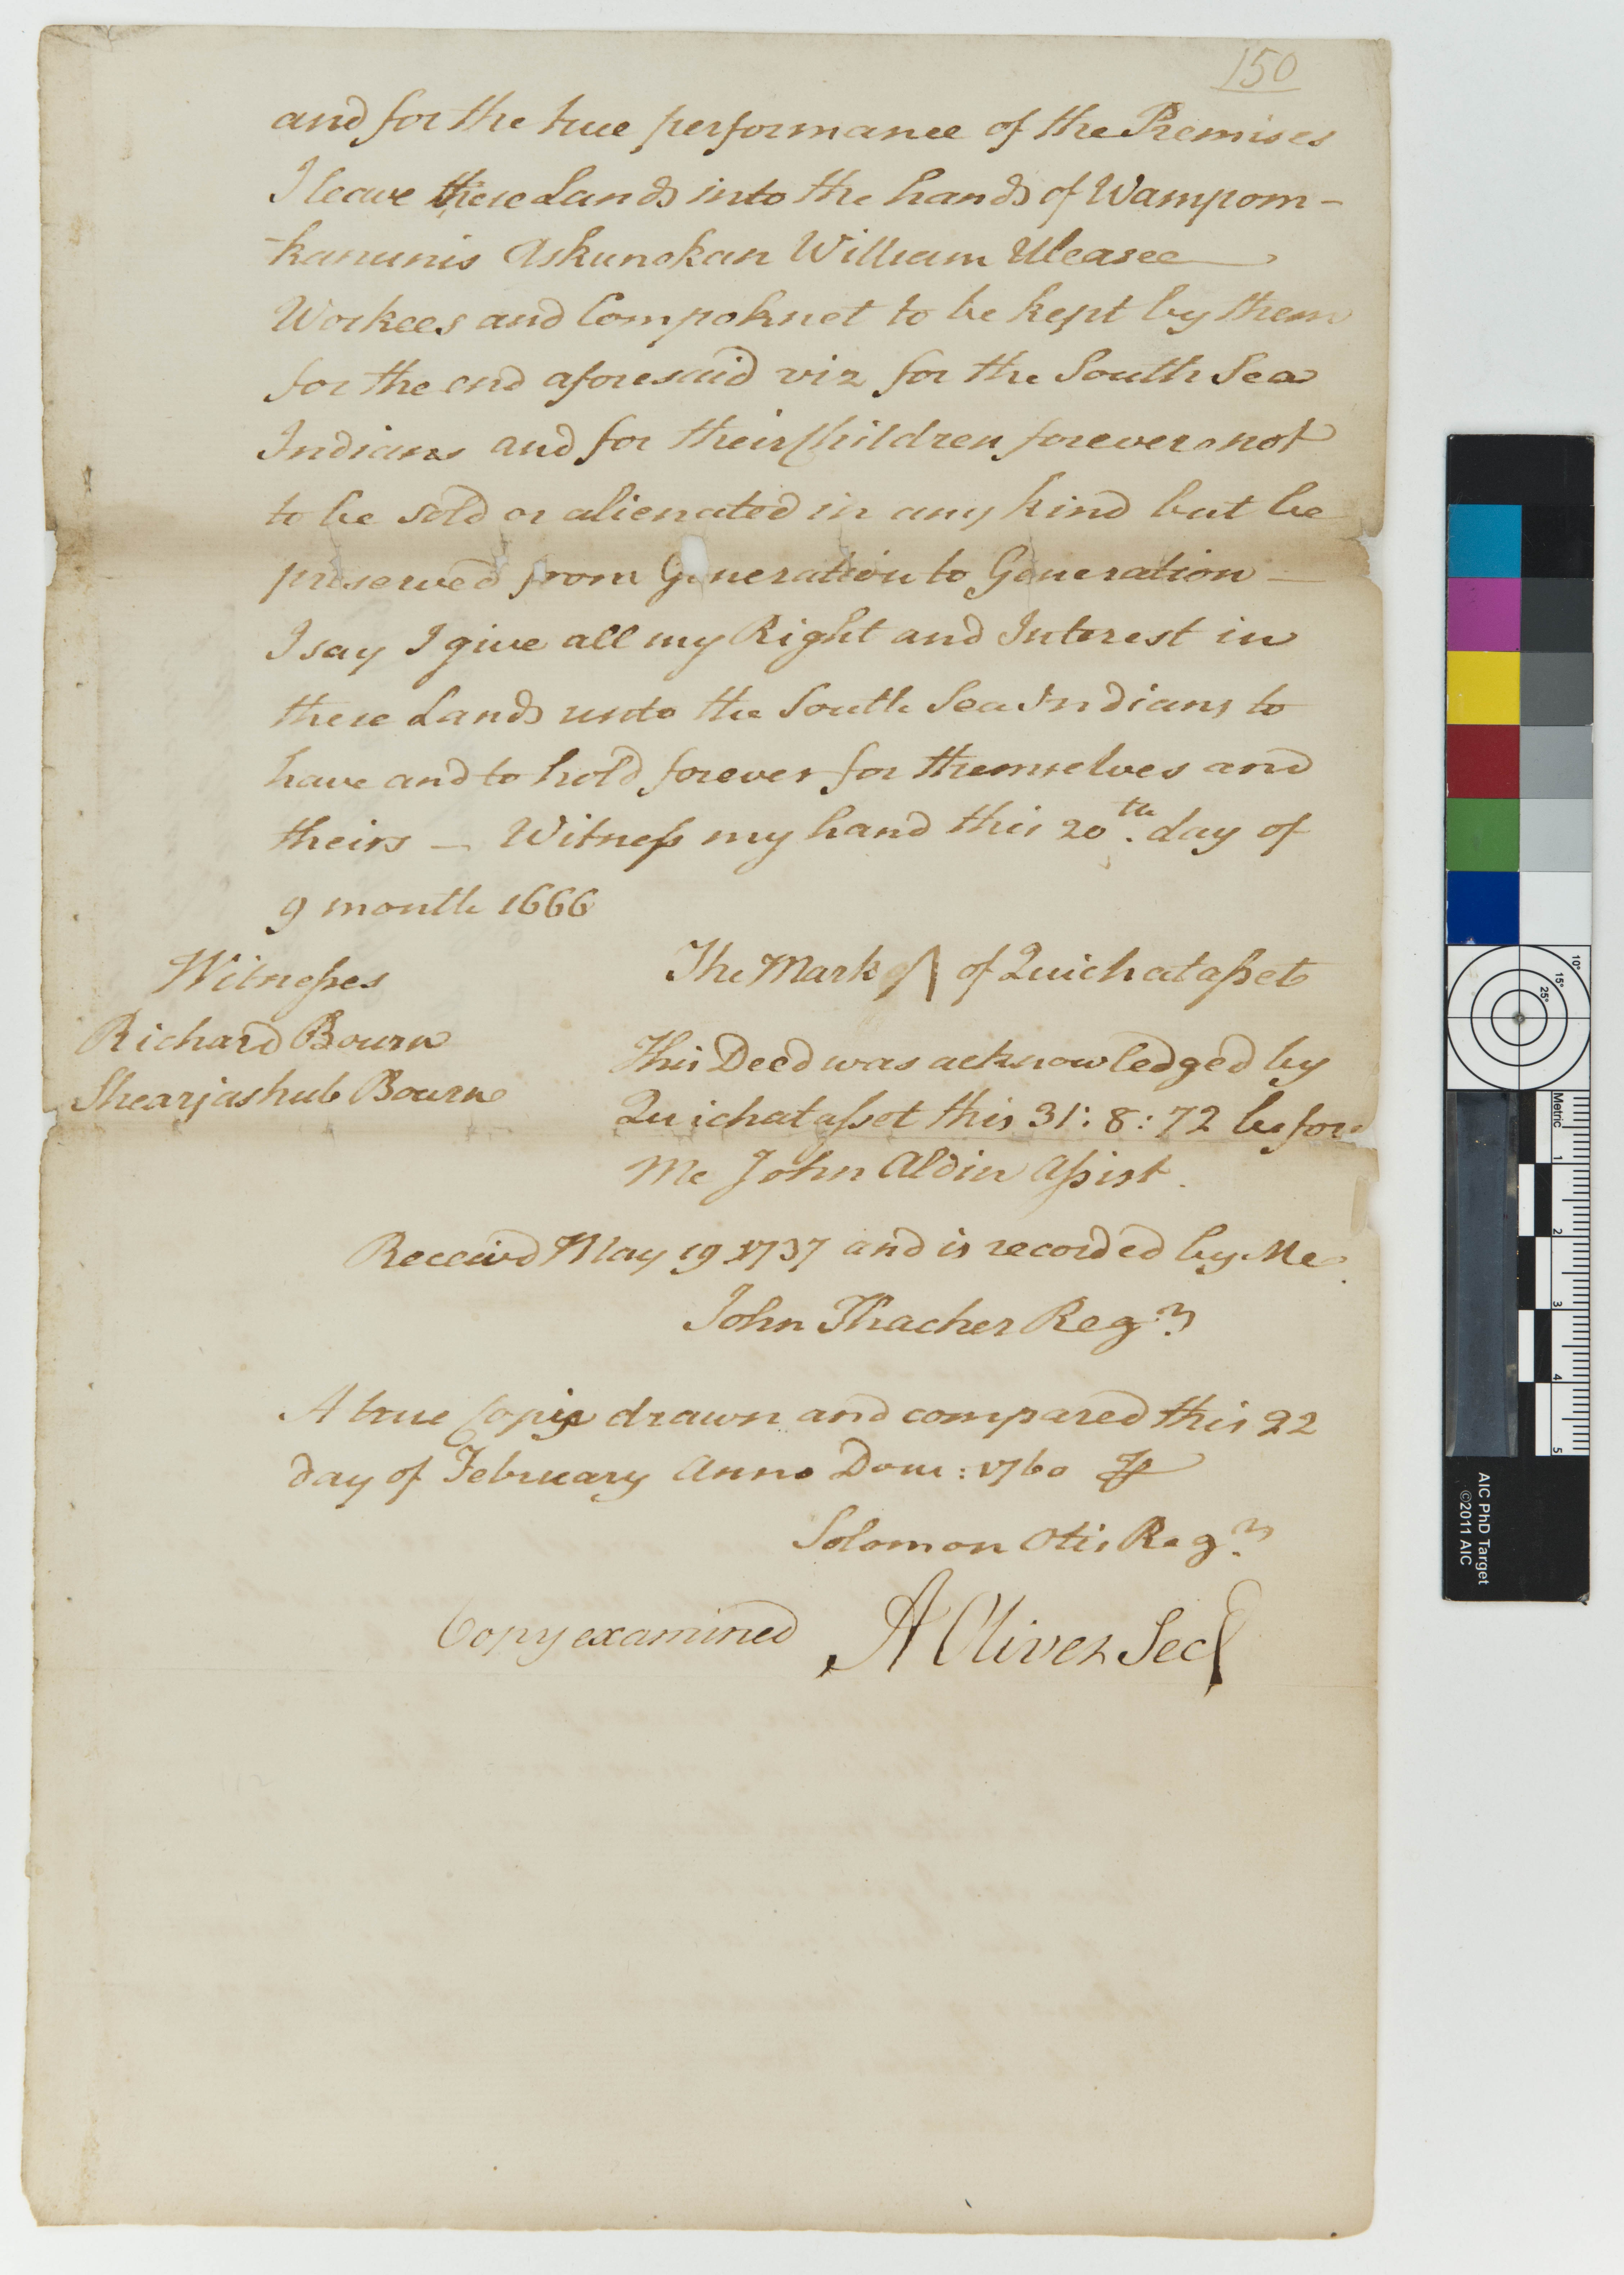 150
and for the true performance of the Premises
I leave these Lands into the hands of Wampom-
-kanunis Askunokan William Uleasee
Workees and Compohnet to be kept by them
for the end aforesaid viz for the South Sea
Indians and for their Children forever not
to be sold or alienated in any kind but be
preserved from Generation to Generation -
I say I give all my Right and Interest in
these Lands unto the South Sea Indians to
have and to hold forever for themselves and
theirs - Witness my hand this 20th. day of
9 month 1666
The Mark of Quichatasset
Witnesses
Richard Bourn
Shearjashub Bourne
This Deed was acknowledged by
Quichatasset this 31: 8: 72 before
Me John Aldin Assist.
Receivd May 19 1737 and is recorded by Me
John Thacher Regr.
A true Copie drawn and compared this 22
day of February Anno Dom: 1760
Solomon Otis Regr.
Copy examined A Oliver Secy
AIC PhD Target
©2011 AIC
Metric
1
2
3
4
5
10°
15°
25°